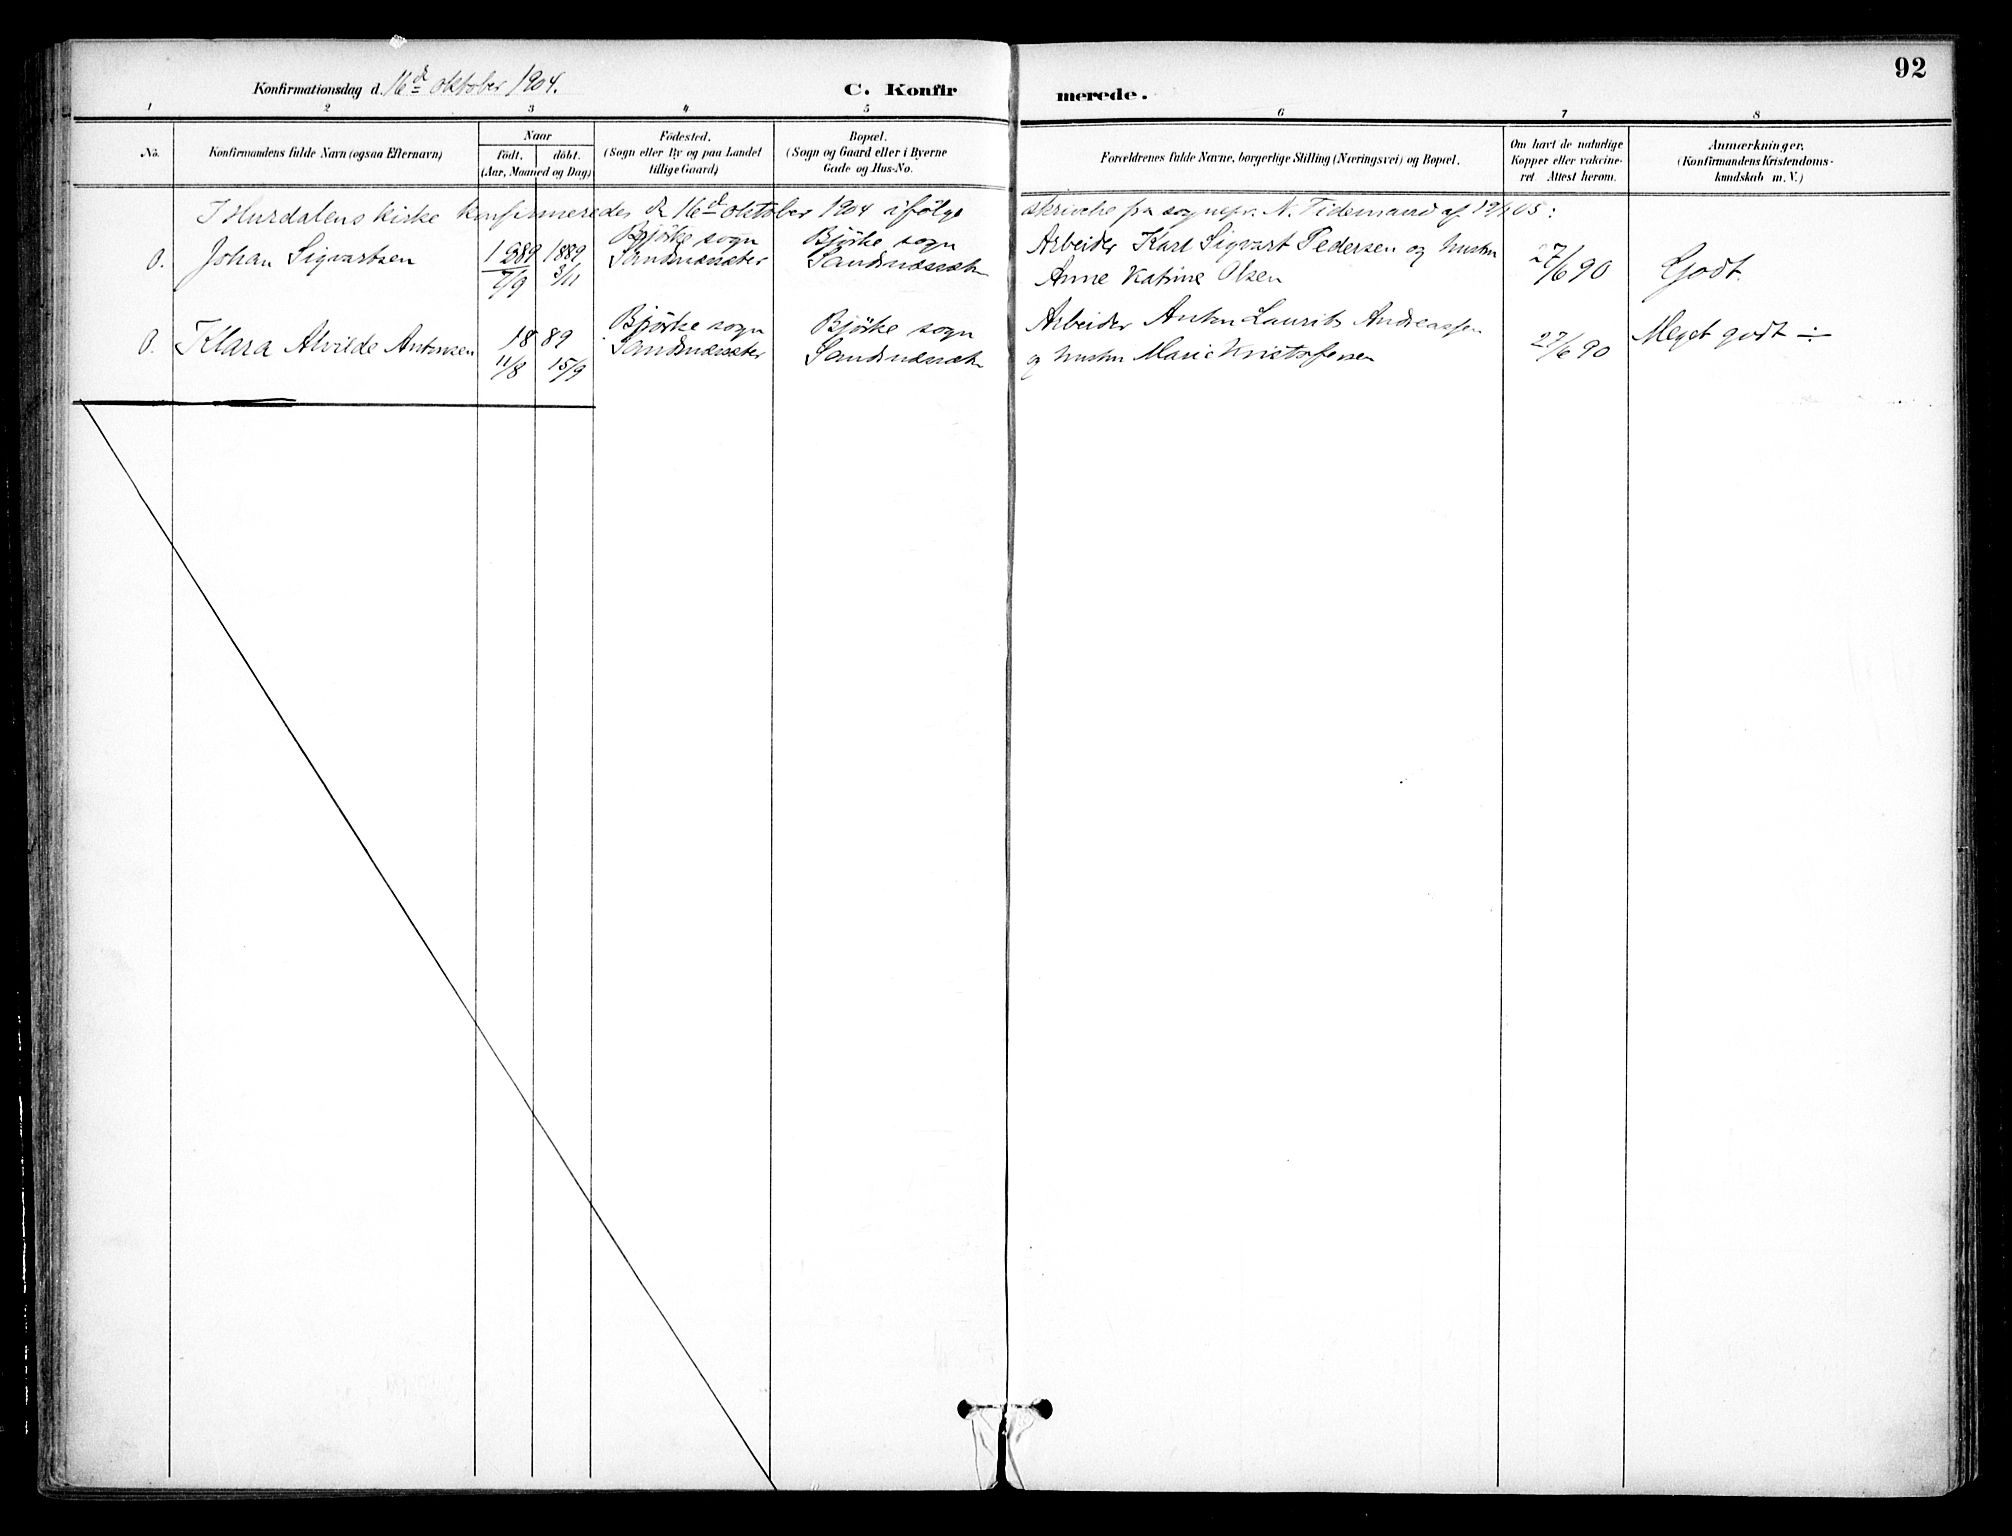 92
Konfirmationsdag d. 16d oktober 1904.
C. Konfir merede.
1 2 3 4 5 6 7 8
No.
Konfirmandens fulde Navn (ogsaa Efternavn)
Naar
født. døbt.
(Aar, Maaned og Dag)
Fødested.
(Sogn eller By og paa Landet
tillige Gaard)
Bopæl.
(Sogn og Gaard eller i Byerne
Gade og Hus-No.
Forældrenes fulde Navne, borgerlige Stilling (Næringsvei) og Bopæl.
Om havt de naturlige
Kopper eller vakcine-
ret. Attest herom.
Anmærkninger.
(Konfirmandens Kristendoms-
kundskab m. V.)
I Hurdalens kirke konfirmeredes d. 16d oktober 1904 ifølge skrivelse fra sognepr. N. Tidemand af 05:
0. Johan Sigvartsen 1889 1889 Bjørke sogn Bjørke sogn Arbeider Karl Sigvart Pedersen og hustru 27/6 90 Godt.
7/9 3/11 Sandnæssæter Sandnæssæt Anne Katrine Olsen
0. Klara Alvilde Antonsen 1889 Bjørke sogn Bjørke sogn Arbeider Anton Laurits Andreassen 27/6 90 Meget godt ÷
11/8 15/9 Sandnæssæter Sandnæssæt og hustru Marie Kristofersen